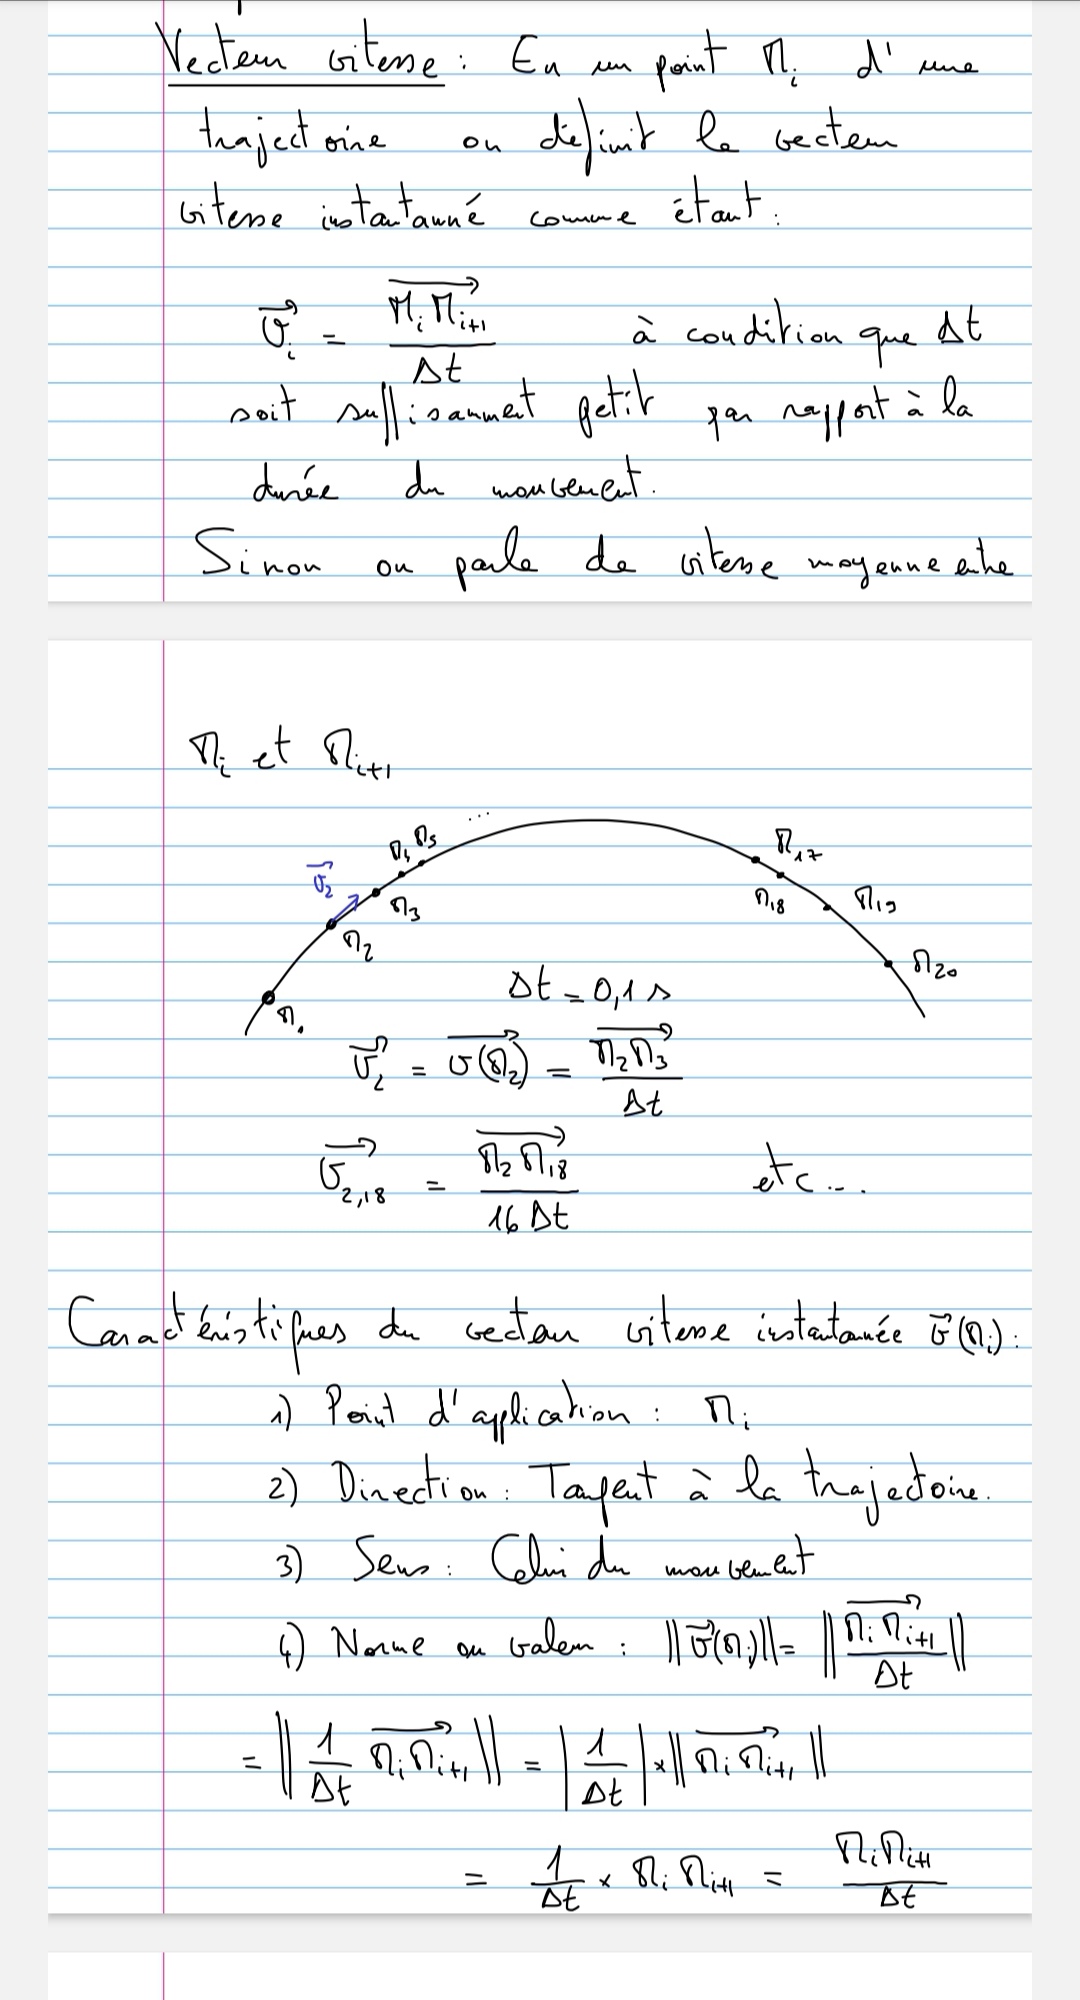 Vecteur vitesse : En un point Mi d'une
trajectoire on définit le vecteur
vitesse instantanné comme étant :
v⃗i = MiMi+1⃗ / Δt à condition que Δt
soit suffisamment petit par rapport à la
durée du mouvement.
Sinon on parle de vitesse moyenne entre
Mi et Mi+1
...
M4 M5
M17
v⃗2
M3
M18
M19
M2
M20
M1
Δt = 0,1 s
v⃗2 = v(M2)⃗ = M2M3⃗ / Δt
v⃗2,18 = M2M18⃗ / 16 Δt etc...
Caractéristiques du vecteur vitesse instantanée v⃗(Mi) :
1) Point d'application : Mi
2) Direction : Tangent à la trajectoire.
3) Sens : Celui du mouvement
4) Norme ou valeur : ||v⃗(Mi)|| = ||MiMi+1⃗ / Δt||
= ||1/Δt MiMi+1⃗|| = |1/Δt| × ||MiMi+1⃗||
= 1/Δt × MiMi+1 = MiMi+1 / Δt